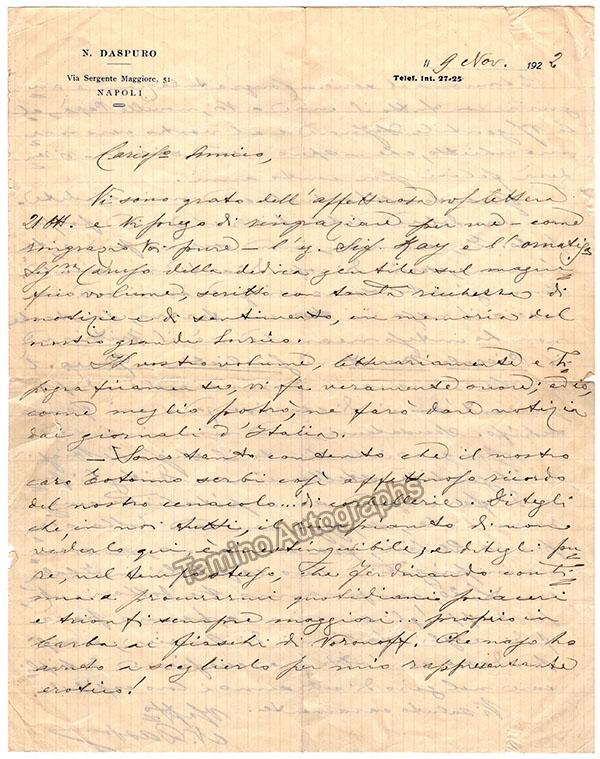 N. DASPURO
Via Sergente Maggiore, 51
NAPOLI
li 9 Nov. 1922
Telef. Int. 27-25
Cariss.o Amico,
Vi sono grato dell'affettuosa lettera
e Vi prego di ringraziare per me – come
ringrazio Voi pure – l'
Sig.ra Caruso della dedica gentile sul magni
fico volume, scritto con tanta ricchezza di
notizie e di sentimento, in memoria del
nostro grande Enrico.
Il vostro volume, letterariamente e ti
pograficamente, vi fa veramente onore; ed io,
come meglio potrò, ne farò dare notizia
dai giornali d'Italia.
– Sono tanto contento che il nostro
caro Totonno serbi così affettuoso ricordo
del nostro cenacolo... di Ditegli
che, in noi tutti, il di non
vederlo qui è inestinguibile, e ditegli pu
re, nel tempo stesso, che Ferdinando conti
nua a procurarmi quotidiani piaceri
e trionfi sempre maggiori... proprio in
barba ai fiaschi di Voronoff. Che naso ho
avuto a sceglierlo per mio rappresentante
erotico!
Tamino Autographs